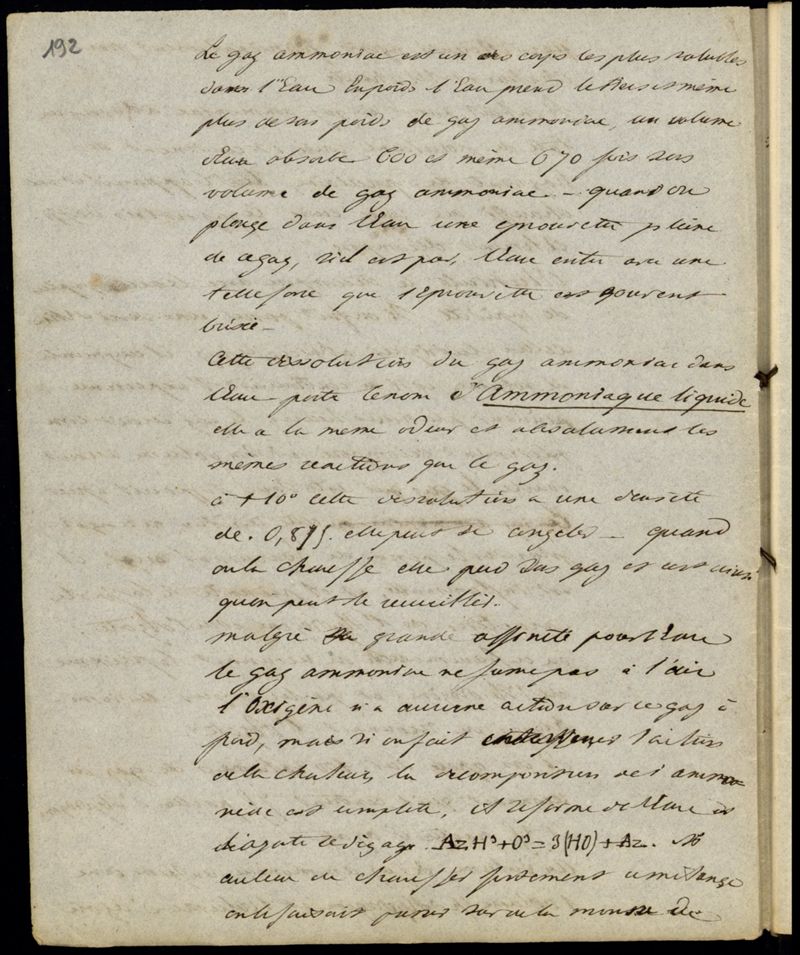 192
Le gaz ammoniac est un des corps les plus solubles
dans l'Eau En poids l'Eau prend le tiers et même
plus de son poids de gaz ammoniac, un volume
d'Eau absorbe 600 et même 670 fois son
volume de gaz ammoniac – quand on
plonge dans l'Eau une eprouvette pleine
de ce gaz, s'il est pur, l'Eau entre avec une
telle force que l'Eprouvette est souvent
brisée –
Cette dissolution du gaz ammoniac dans
l'Eau porte le nom d'Ammoniaque liquide
elle a la meme odeur et absolument les
mêmes reactions que le gaz.
à +10° cette dissolution a une densité
de . 0,875. elle peut se congeler – quand
on la chauffe elle perd son gaz et c'est ainsi
qu'on peut le recueillir.
malgré sa grande affinité pour l'Eau
le gaz ammoniac ne fume pas à l'air
l'Oxigène n'a aucune action sur ce gaz à
froid, mais si on fait intervenir l'action
de la chaleur, la decomposition de l'ammo
niac est complète, il se forme de l'Eau et
l'azote se dégage. AzH³+O³=3(HO)+Az. Si
au lieu de chauffer fortement ce mélange
on le faisait passer sur de la mousse de